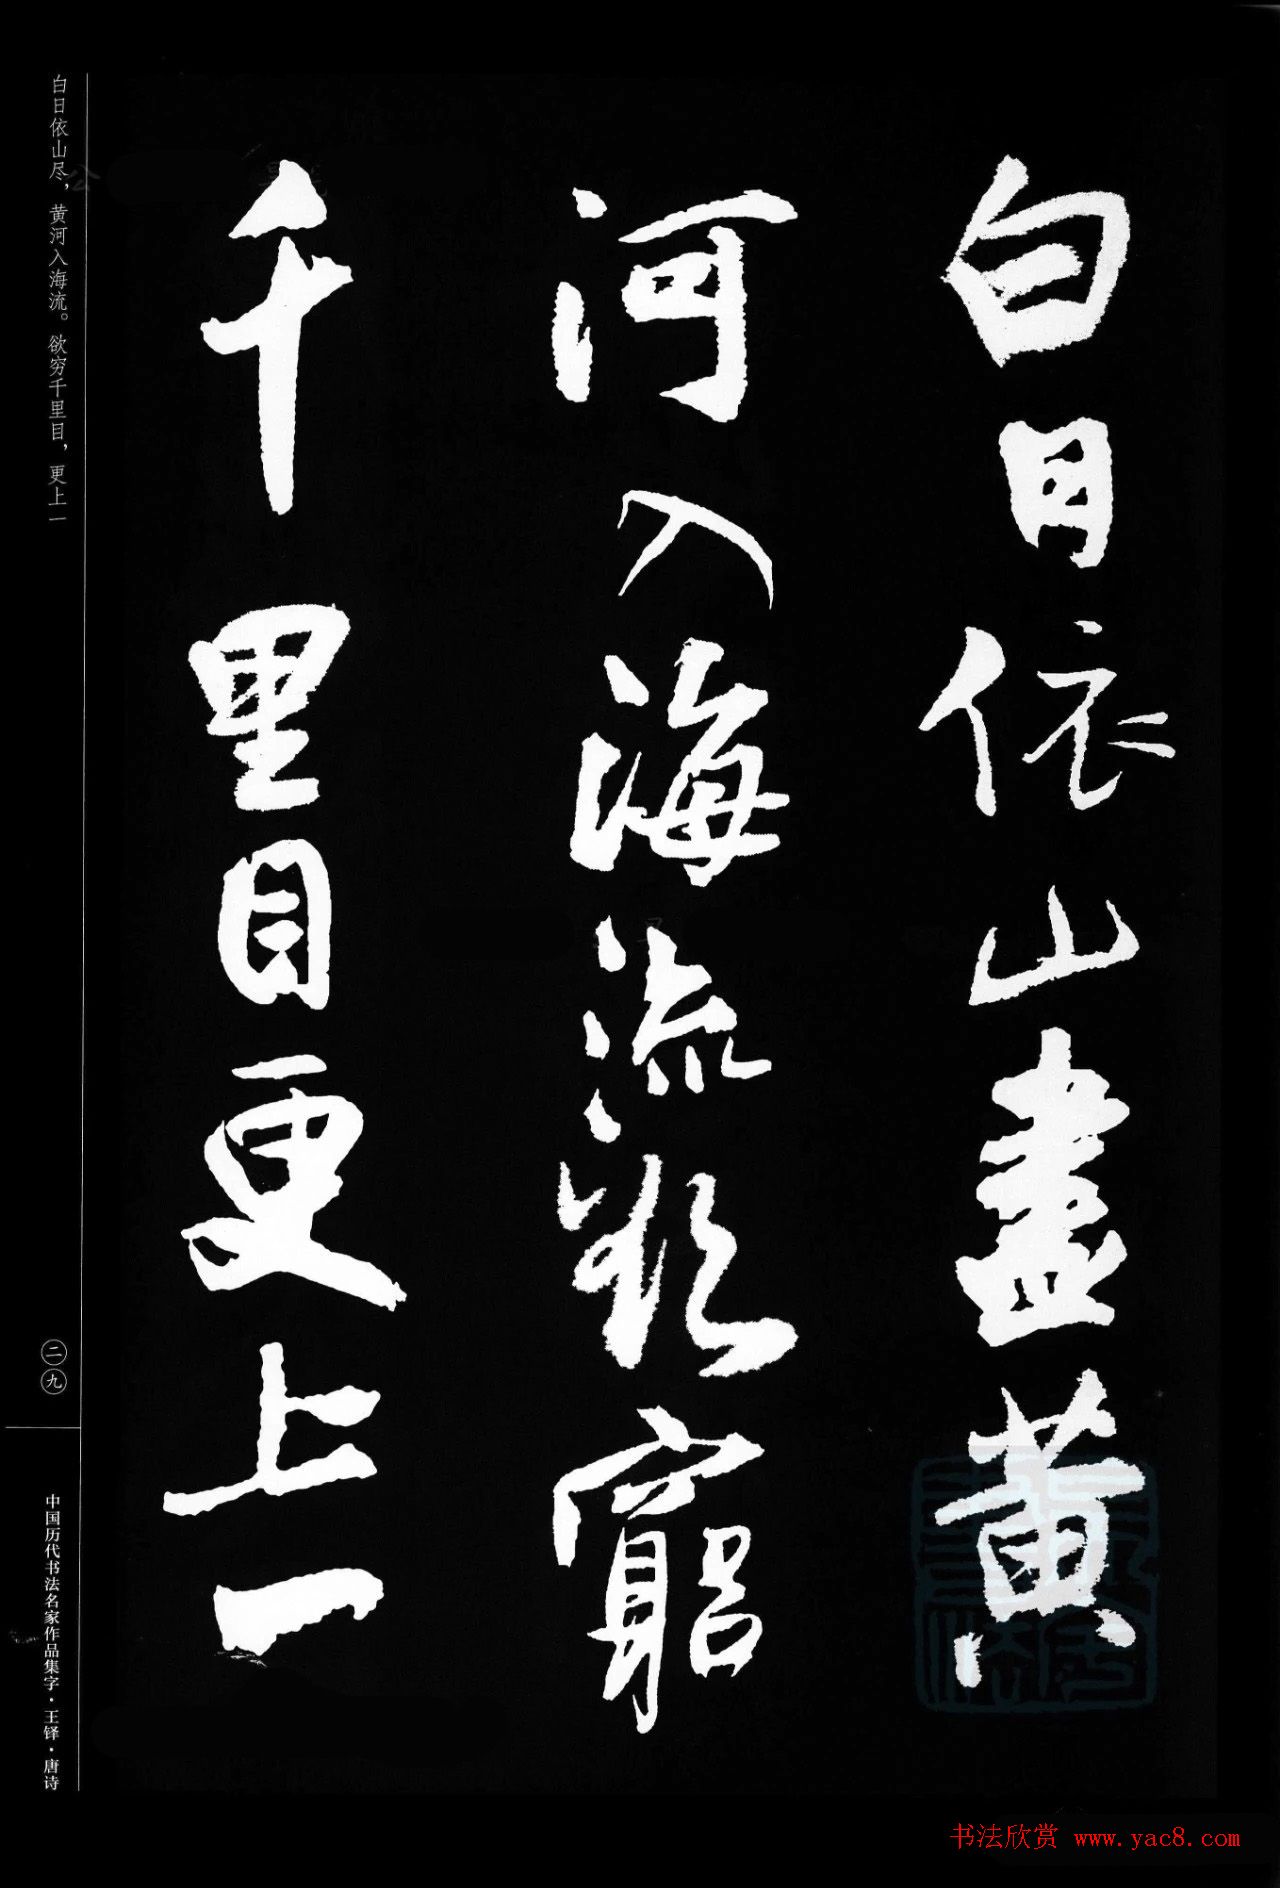 白日依山盡黃
河入海流欲窮
千里目更上一
白日依山尽，黄河入海流。欲穷千里目，更上一
二九
中国历代书法名家作品集字·王铎·唐诗
书法欣赏 www.yac8.com